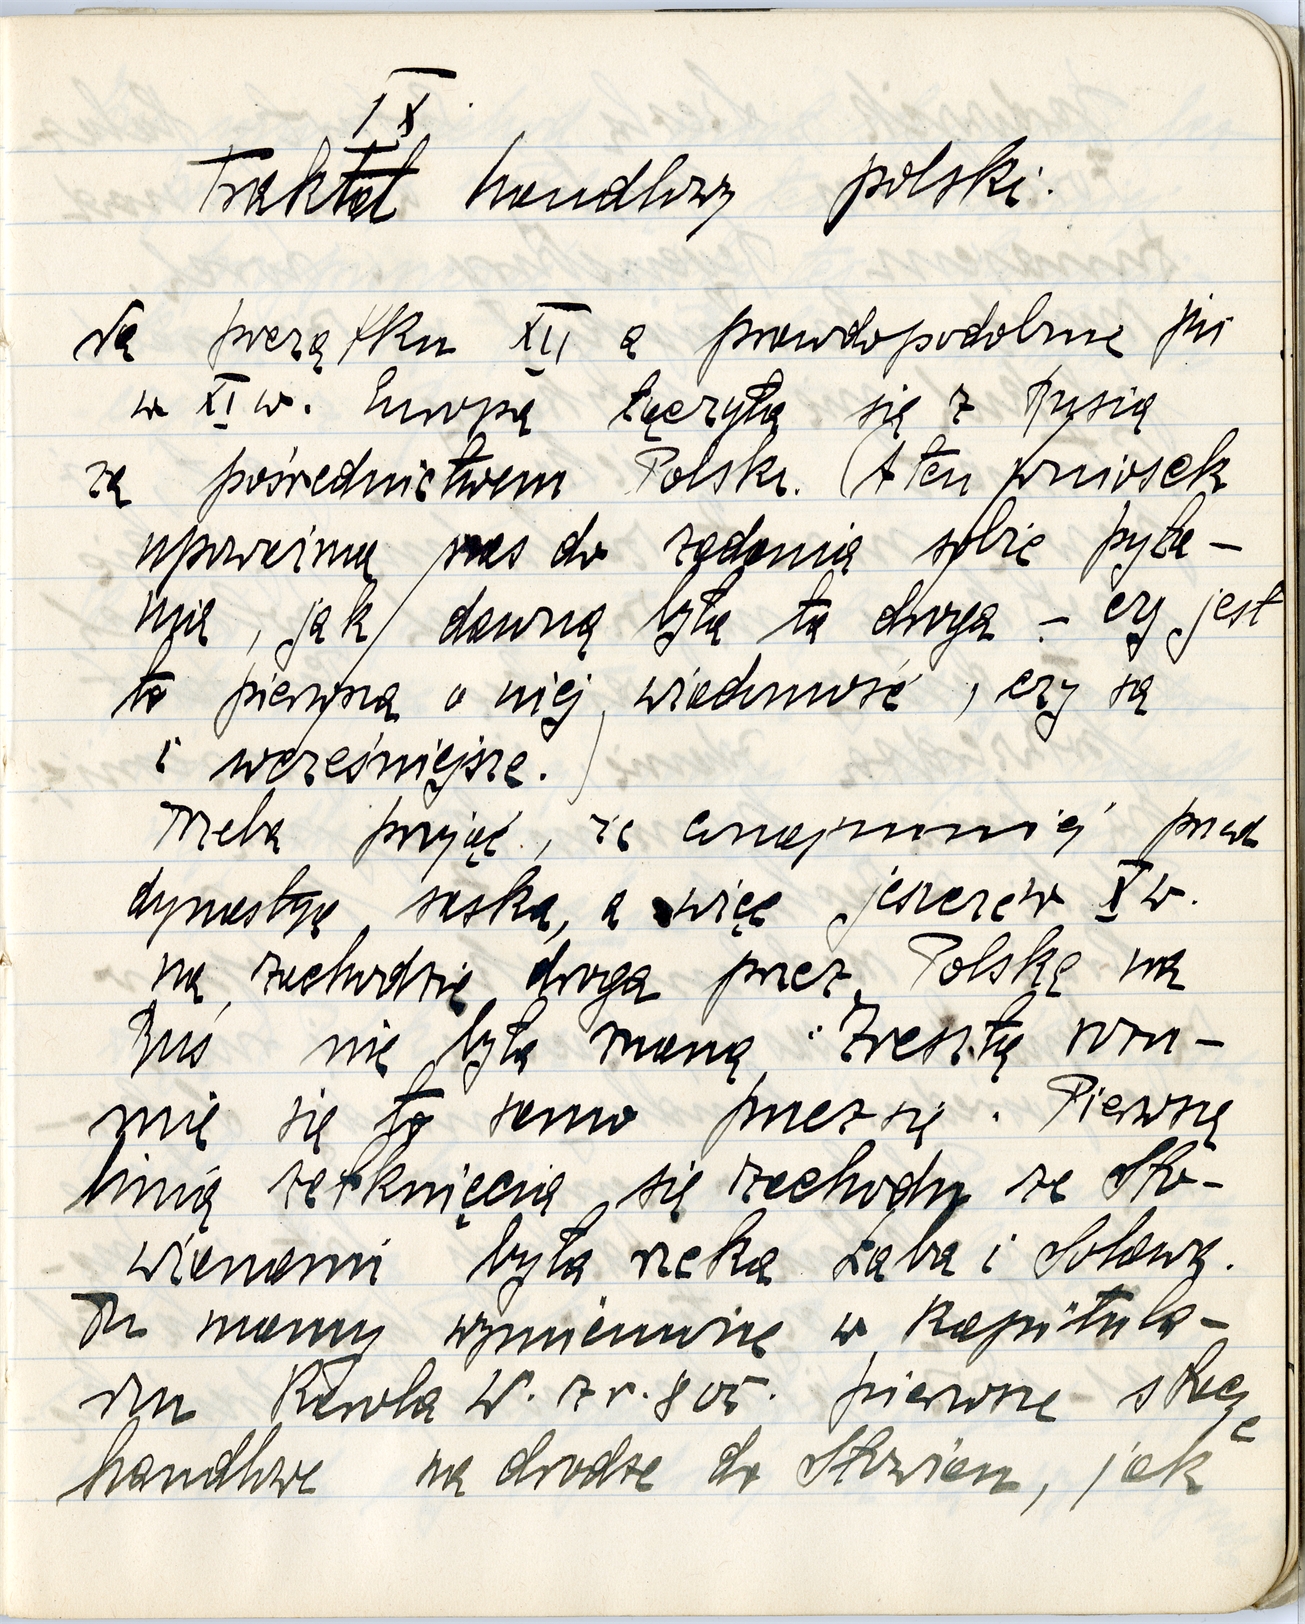 IX.
Traktat handlowy polski.
Na początku XII a prawdopodobnie już
w XI w. Europa łączyła się z Rusią
za pośrednictwem Polski. (A ten wniosek
upoważnia nas do zadania sobie pyta-
nia, jak dawną była ta droga – czy jest
to pierwsza o niej wiadomość, czy są
i wcześniejsze.)
Trzeba przyjąć, że conajmniej przed
dynastyą saską, a więc jeszcze w X w.
na zachodzie droga przez Polskę na
Ruś nie była znaną. Zresztą rozu-
mie się to samo przez się. Pierwszą
linią zetknięcia się zachodu ze Sło-
wianami była rzeka Łaba i Solawa.
Tu mamy wymienione w Kapitula-
rzu Karola W. z r. 805. pierwsze stacje
handlowe na drodze do Słowian, jak